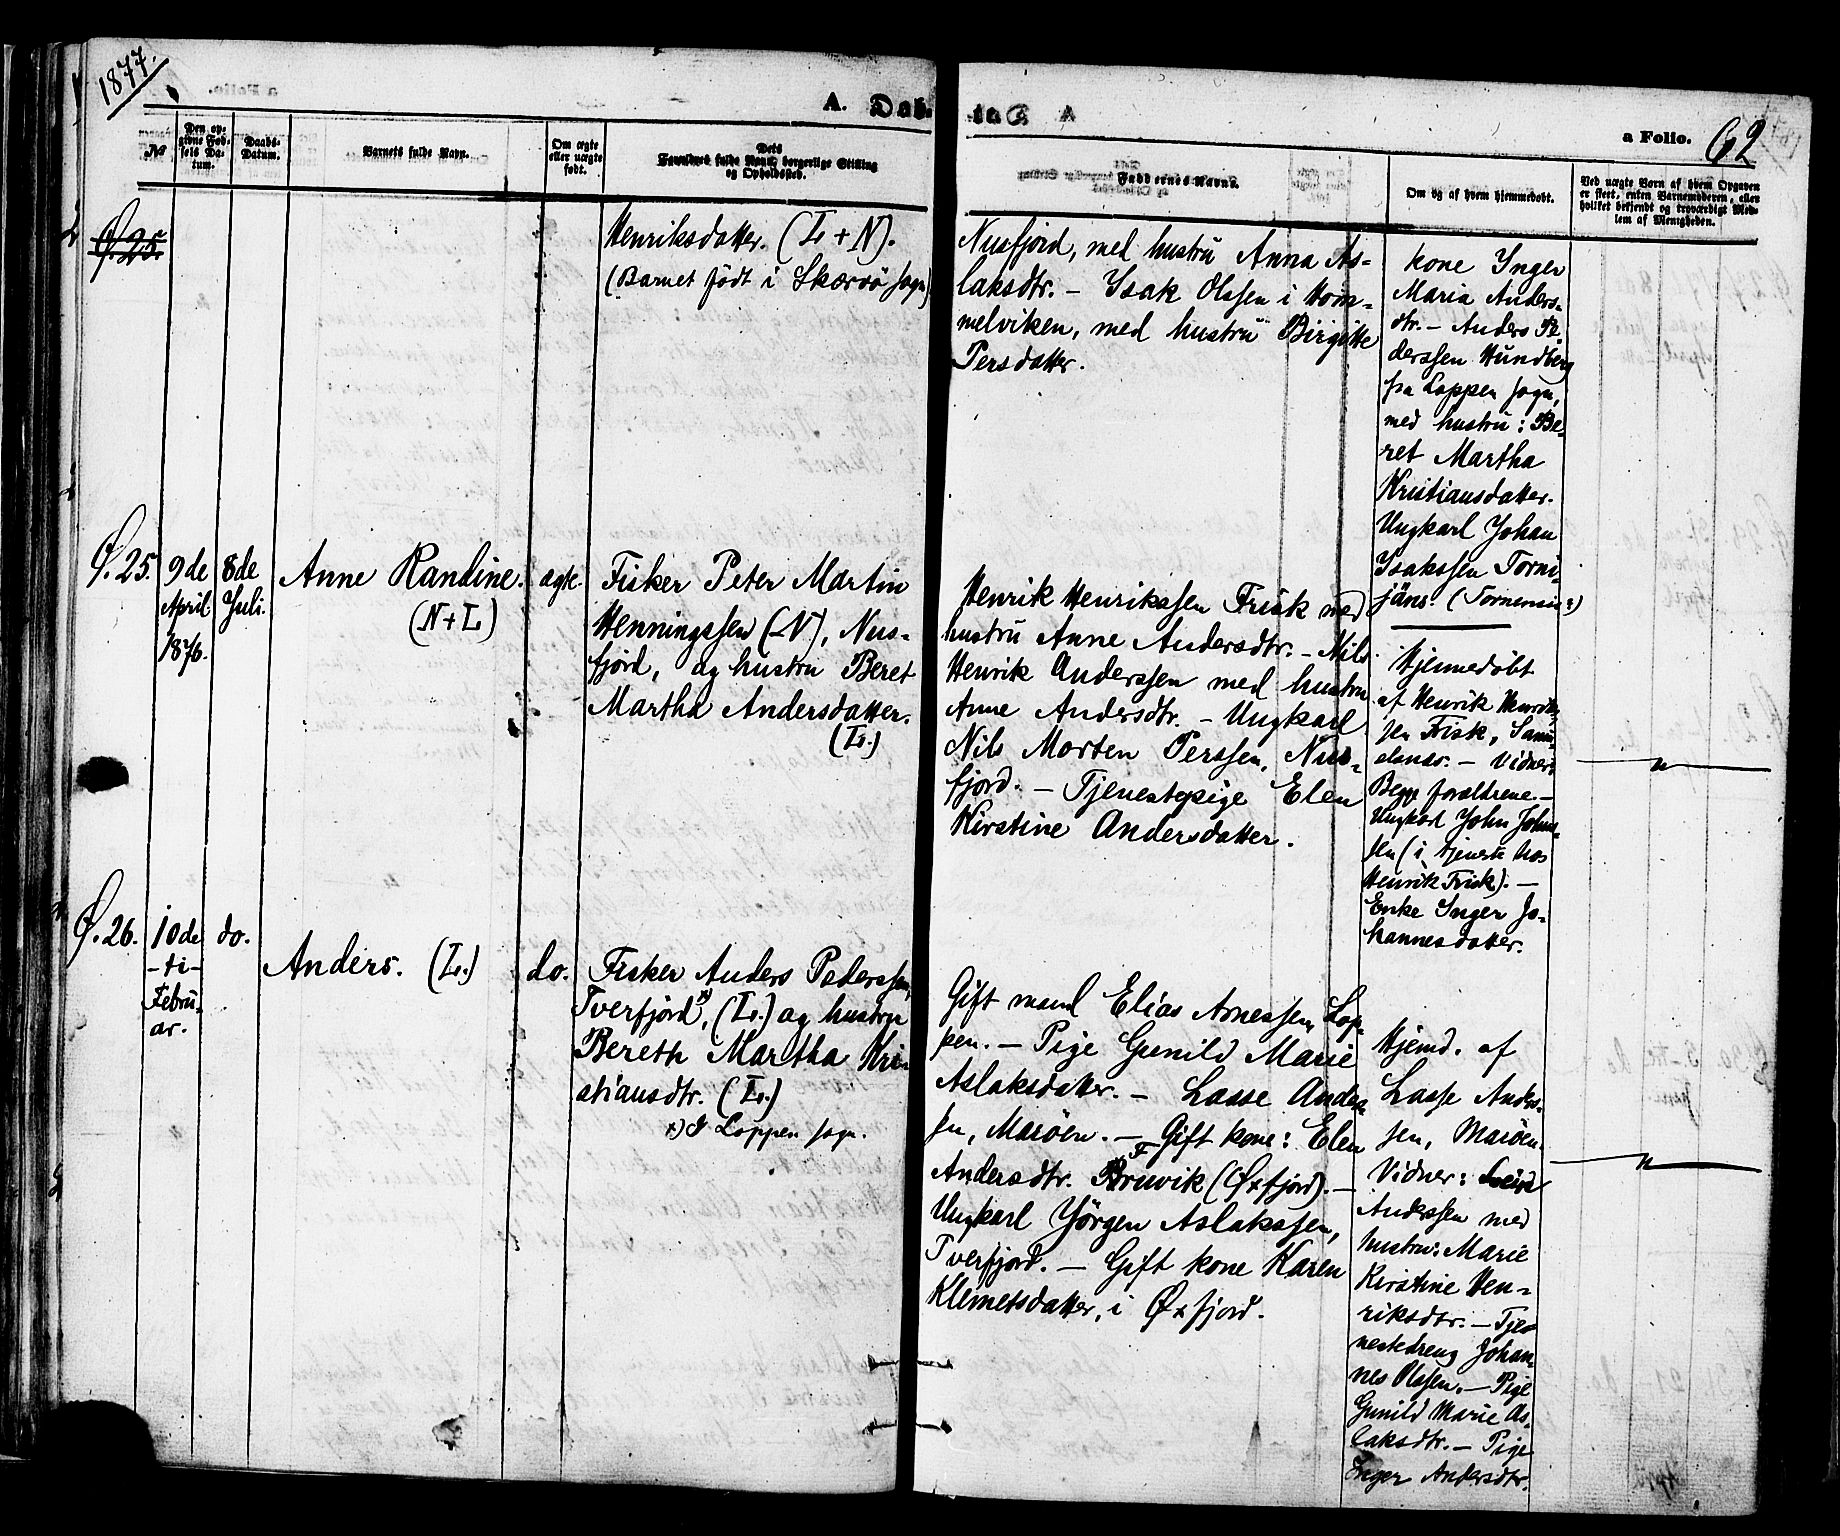 1877.
A. Daab.
a Folio. 62
№
Den op-
givne Fød-
sels Da-
tum.
Daabs-
Datum.
Barnets fulde Navn.
Om ægte
eller uægte
født.
Dets
Forældres fulde Navn, borgerlige Stilling
og Opholdssted.
Faddernes Navne.
Om og af hvem hjemmedøbt.
Ved uægte Børn af hvem Opgaven
er skeet, enten Barnemoderen, eller
hvilket bekjendt og troværdigt Med-
lem af Menigheden.
Ø. 25.
Henriksdatter. (L + N).
(Barnet født i Skærvö sogn)
Nusfjord, med hustru Anna As-
laksdtr. – Isak Olssen i Hom-
melviken, med hustru Birgitte
Persdatter.
kone Inger
Maria Anders-
dtr. – Anders Pe-
derssen Hundberg
fra Loppen sogn,
med hustru: Be-
ret Martha
Kristiansdatter.
Ungkarl Johan
Isakssen Torni-
jäns. (Tornensis?)
Ø. 25.
9de
April
1876.
8de
Juli.
Anne Randine.
(N+L)
ægte.
Fisker Peter Martin
Henningssen (N), Nus-
fjord, og hustru Beret
Martha Andersdatter.
(L.)
Henrik Henrikssen Frisk med
hustru Anne Andersdtr. – Nils
Henrik Anderssen med hustru
Anne Andersdtr. – Ungkarl
Nils Morten Perssen, Nus-
fjord. – Tjenestepige Elen
Kirstine Andersdatter.
Hjemmedöbt
af Henrik Henrik-
sen Frisk,
– Vidner:
Begge forældrene. –
Ungkarl John John-
sen (i tjeneste hos
Henrik Frisk). –
Enke Inger Jo-
hannesdatter.
Ø. 26.
10de
– ti –
Febru-
ar.
do.
Anders. (L.)
do.
Fisker Anders Pederssen,
Tverfjord x), (L.) og hustru
Bereth Martha Kri-
stiansdtr. (L.)
x) I Loppen sogn.
Gift mand Elias Arnessen, Lop-
pen. – Pige Gunild Marie
Aslaksdatter. – Lasse Anders-
sen, Maröen. – Gift kone: Elen
Andersdtr. Bruvik (Øxfjord). –
Ungkarl Jörgen Aslakssen,
Tverfjord. – Gift kone Karen
Klemetsdatter, i Øxfjord.
Hjemd. af
Lasse Anders-
sen, Maröen.
Vidner:
Anderssen med
hustru: Marie
Kirstine Hen-
riksdtr. – Tje-
nestedreng Johan-
nes Olssen. – Pige
Gunild Marie As-
laksdtr. – Pige
Inger Andersdtr.